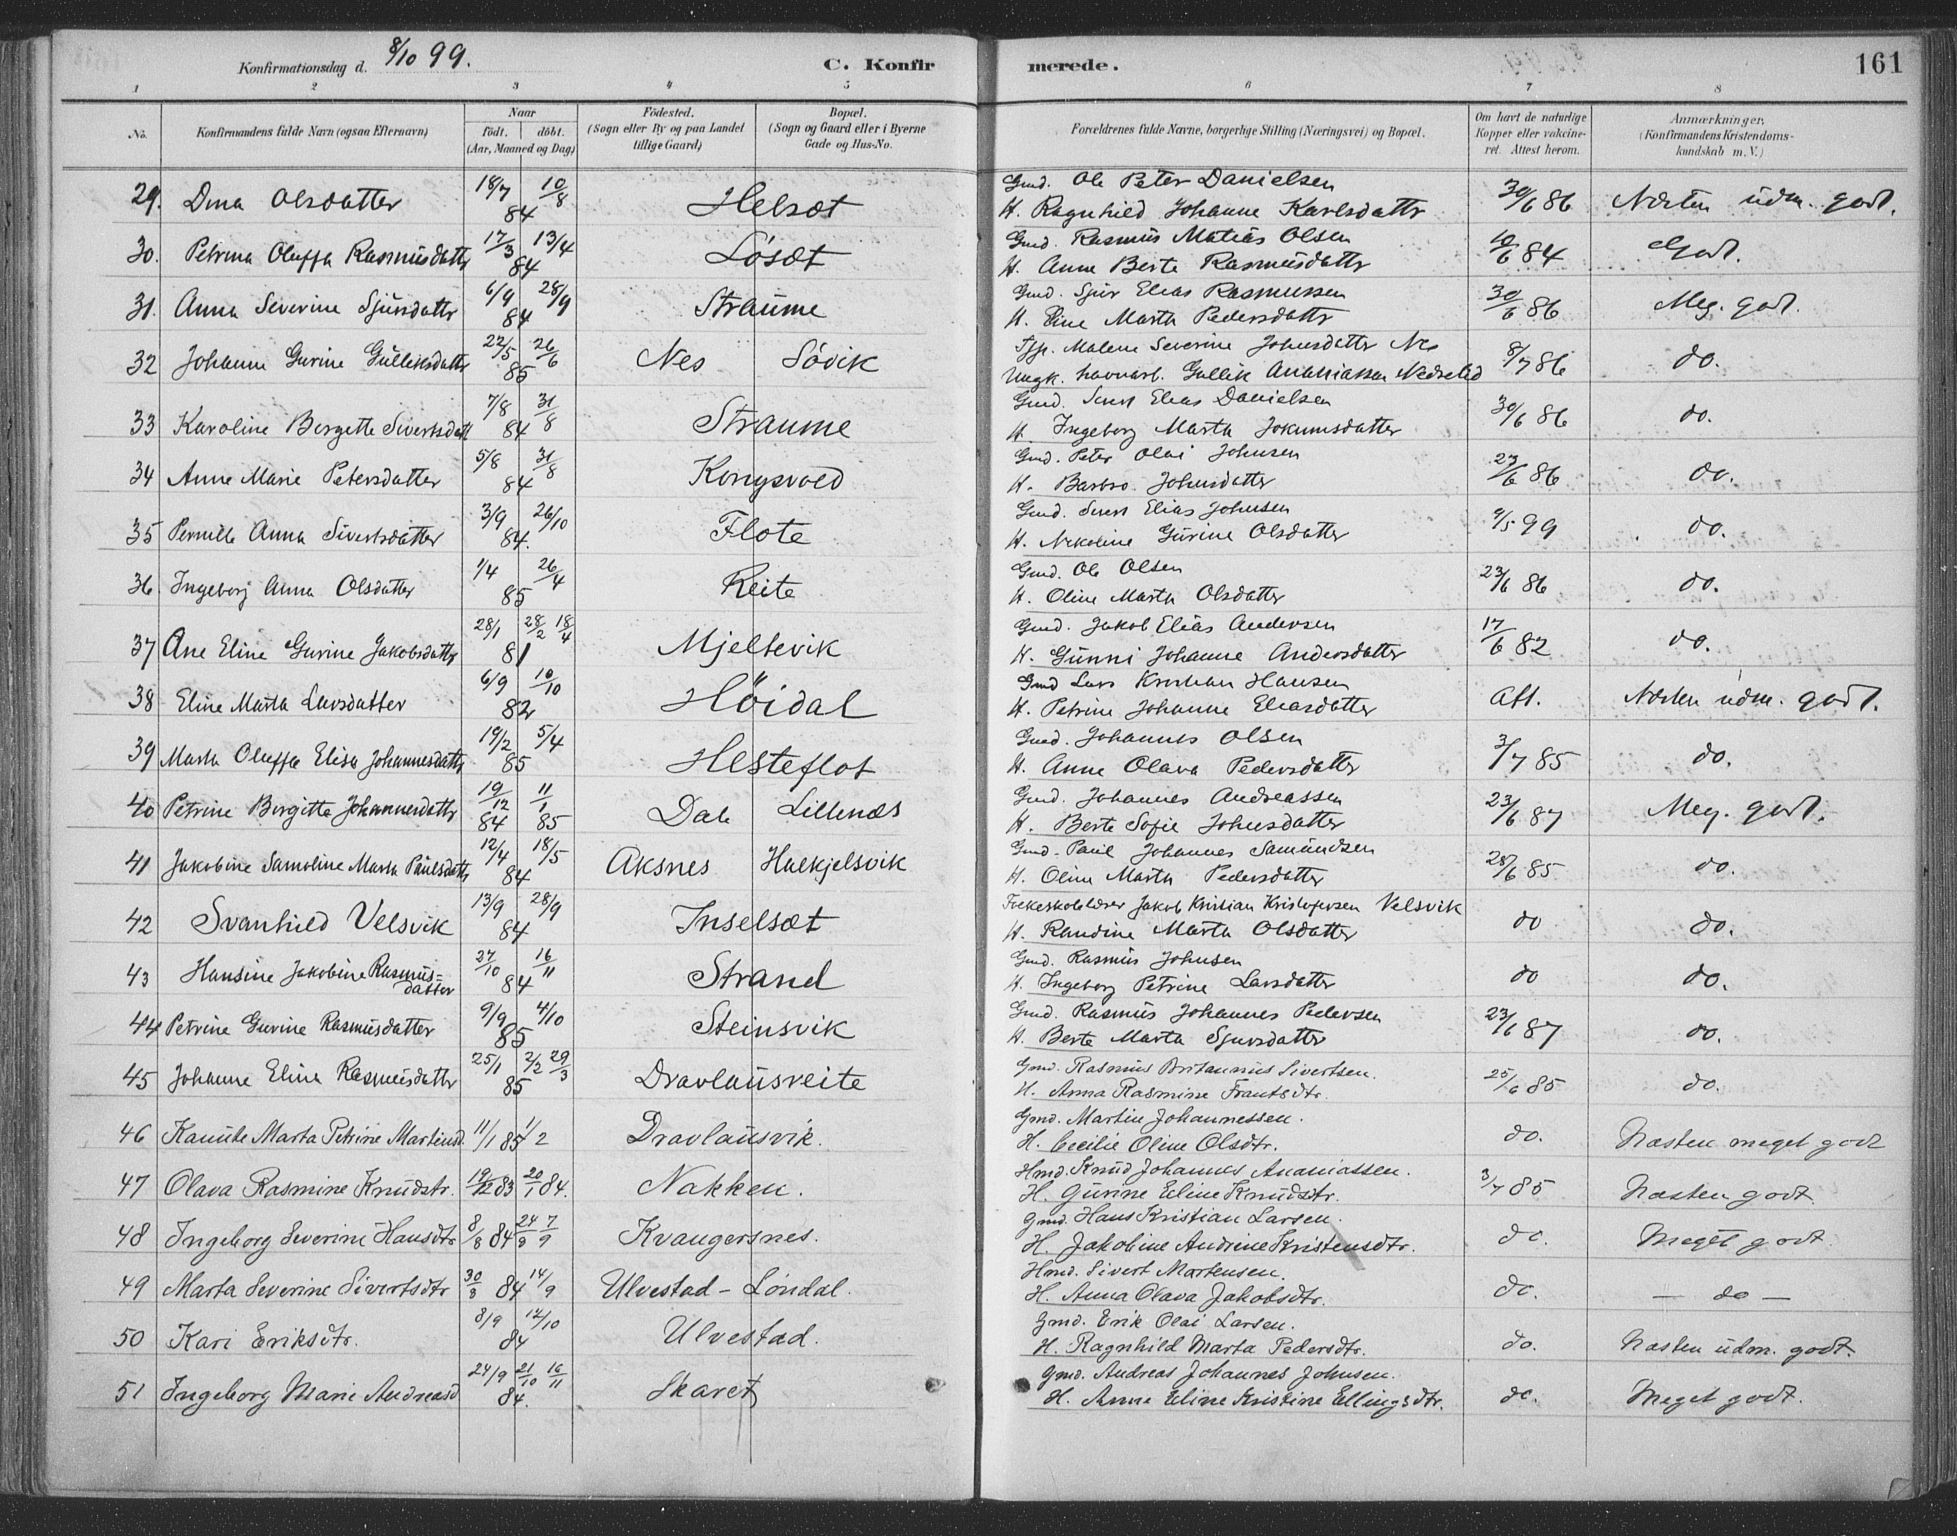 Konfirmationsdag d. 8/10 99. C. Konfirmerede. 161
1 2 3 4 5 6 7 8
No. Konfirmandens fulde Navn (ogsaa Efternavn) Naar födt. döbt. (Aar, Maaned og Dag) Födested. (Sogn eller By og paa Landet tillige Gaard) Bopæl. (Sogn og Gaard eller i Byerne Gade og Hus-No. Forældrenes fulde Navne, borgerlige Stilling (Næringsvei) og Bopæl. Om havt de naturlige Kopper eller vakcineret. Attest herom. Anmærkninger, (Konfirmandens Kristendomskundskab m. V.)
29. Dina Olsdatter 18/7 10/8 84 Helsæt Gmd. Ole Peter Danielsen 30/6 86 Næsten udm. godt.
H. Ragnhild Johanne Karlsdattr
30. Petrina Oluffa Rasmusdattr 17/3 13/4 84 Løsæt Gmd. Rasmus Matias Olsen 10/6 84 Godt.
H. Anne Berte Rasmusdattr
31. Anna Severine Sjursdattr 6/9 28/9 84 Straume Gmd. Sjur Elias Rasmussen 30/6 86 Meg. godt.
H. Eline Marta Pedersdattr
32 Johanne Gurine Gulleiksdattr 22/5 26/6 85 Nes Søvik Malene Severine Johnsdatter Nes 8/7 86 do.
Ungk. havnarb. Gullik Ananiassen Nedrelid
33 Karoline Bergette Sivertsdatt 7/8 31/8 84 Straume Gmd. Sivert Elias Danielsen 30/6 86 do.
H. Ingeborg Marta Jokumsdatter
34 Anne Marie Petersdatter 5/8 31/8 84 Kongsvold Gmd. Peter Olai Johnsen 27/6 86 do.
H. Barbro Johnsdatter
35 Pernille Anna Sivertsdatter 3/9 26/10 84. Flote Gmd. Sivert Elias Johnsen 9/5 99 do.
H. Nekoline Gurine Olsdatter
36. Ingeborg Anna Olsdatter 1/4 26/4 85 Reite Gmd. Ole Olsen 23/6 86 do.
H. Oline Marta Olsdatter
37 Ane Eline Gurine Jakobsdattr 28/1 28/2 18/4 81 Mjeltevik Gmd. Jakob Elias Andersen 17/6 82 do.
H. Gunni Johanne Andersdatter
38 Eline Marta Larsdatter 6/9 10/10 82 Høidal Gmd Lars Kristian Hansen Att. Næsten udm. godt.
H. Petrine Johanne Eliasdatter
39 Marta Oluffa Elisa Johannesdattr 19/2 5/4 85 Hesteflot Gmd. Johannes Olsen 3/7 85 do.
H. Anne Olava Pedersdatter
40 Petrine Bergitte Johannesdattr 19/12 84 11/1 85 Dale Lillenæs Gmd. Johannes Andreassen 23/6 87 Meg. godt.
H. Berte Sofie Johnsdatter
41 Jakobine Samoline Marta Paulsdattr 12/4 18/5 84 Aksnes Halkjelsvik Gmd. Paul Johannes Samundsen 28/6 85 do.
H. Oline Marta Pedersdatter
42 Svanhild Velsvik 13/9 28/9 84 Inselsæt Folkeskolelærer Jakob Kristian Kristofersen Velsvik do do.
H. Randine Marta Olsdatter
43 Hansine Jakobine Rasmusdatter 27/10 16/11 84 Strand Gmd. Rasmus Johnsen do do.
H. Ingeborg Petrine Larsdatter
44 Petrine Gurine Rasmusdatter 9/9 4/10 85 Steinsvik Gmd. Rasmus Johannes Pedersen 23/6 87 do.
H. Berte Marta Sjursdatter
45 Johanne Elina Rasmusdatter 25/1 2/2 29/3 85 Dravlausreite Gmd. Rasmus Britannus Sivertsen. 25/6 85 do.
H. Anna Rasmine Frantsdtr.
46 Kanute Marta Petrine Martinsd. 11/1 85 1/2 Dravlausvik. Gmd. Martin Johannessen. do. Næsten meget godt
H. Cecilie Oline Olsdtr.
47 Olava Rasmine Knudsdtr. 19/12 83 20/1 84. Nakken. Hmd. Knud Johannes Ananiassen. 3/7 85 Næsten godt.
H. Gurine Eline Knudsdtr.
48 Ingeborg Severine Hansdtr 8/8 84 24/8 7/9 Kvangersnes. Gmd. Hans Kristian Larsen. do. Meget godt
H. Jakobine Andrine Kristensdtr.
49 Marta Severine Sivertsdtr 30/3 84 14/9 Ulvestad - Løndal. Hmd. Sivert Martensen. do. — do —
H. Anna Olava Jakobsdtr.
50 Kari Eriksdtr. 8/9 12/10 84 Ulvestad. Gmd. Erik Olai Larsen. do. Næsten udm. godt.
H. Ragnhild Marta Pedersdtr.
51 Ingeborg Marie Andreasd 24/9 21/10 16/11 84. Skaret Gmd. Andreas Johannes Johnsen. do. Meget godt.
H. Anne Eline Kristine Ellingsdtr.